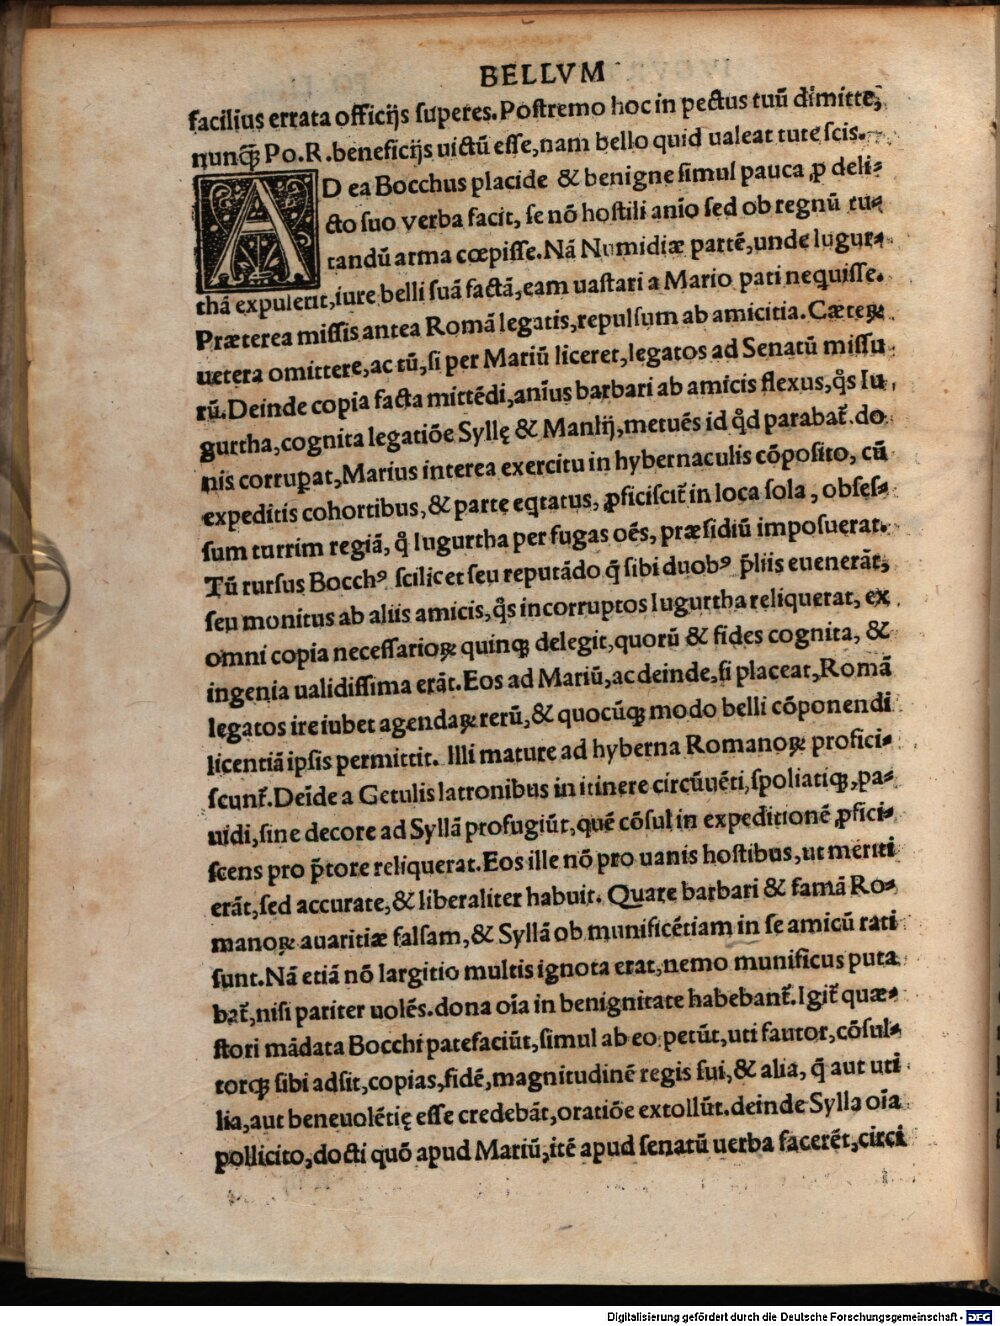 BELLVM
facilius errata officijs superes. Postremo hoc in pectus tuū dimitte,
nunq̄ Po.R. beneficijs uictū esse, nam bello quid ualeat tute scis.
AD ea Bocchus placide & benigne simul pauca ꝓ deli-
cto suo verba facit, se nō hostili anīo sed ob regnū tu-
tandū arma cœpisse. Nā Numidiæ partē, unde Iugur-
thā expulerit, iure belli suā factā, eam uastari a Mario pati nequisse.
Præterea missis antea Romā legatis, repulsum ab amicitia. Cæteꝝ
uetera omittere, ac tū, si per Mariū liceret, legatos ad Senatū missu
rū. Deinde copia facta mittēdi, anīus barbari ab amicis flexus, q̊s Iu
gurtha, cognita legatiōe Syllę & Manlij, metuēs id q̊d parabat̄. do
nis corrupat, Marius interea exercitu in hybernaculis cōposito, cū
expeditis cohortibus, & parte eqtatus, ꝓficiscit̄ in loca sola, obses-
sum turrim regiā, q̊ Iugurtha per fugas oēs, præsidiū imposuerat.
Tū rursus Bocchꝰ scilicet seu reputādo q̄ sibi duobꝰ p̄liis euenerāt,
seu monitus ab aliis amicis, q̊s incorruptos Iugurtha reliquerat, ex
omni copia necessarioꝝ quinqꝫ delegit, quorū & fides cognita, &
ingenia ualidissima erāt. Eos ad Mariū, ac deinde, si placeat, Romā
legatos ire iubet agendaꝝ rerū, & quocūqꝫ modo belli cōponendi
licentiā ipsis permittit. Illi mature ad hyberna Romanoꝝ profici-
scunt̄. Deīde a Getulis latronibus in itinere circūuēti, spoliatiqꝫ, pa-
uidi, sine decore ad Syllā profugiūt, quē cōsul in expeditionē ꝓfici-
scens pro p̄tore reliquerat. Eos ille nō pro uanis hostibus, ut meriti
erāt, sed accurate, & liberaliter habuit. Quare barbari & famā Ro-
manoꝝ auaritiæ falsam, & Syllā ob munificētiam in se amicū rati
sunt. Nā etiā nō largitio multis ignota erat, nemo munificus puta
bat̄, nisi pariter uolēs. dona oīa in benignitate habebant̄. Igit̄ quæ-
stori mādata Bocchi patefaciūt, simul ab eo petūt, uti fautor, cōsul-
torqꝫ sibi adsit, copias, fidē, magnitudinē regis sui, & alia, q̄ aut uti
lia, aut beneuolētię esse credebāt, oratiōe extollūt. deinde Sylla oīa
pollicito, docti quō apud Mariū, itē apud senatū uerba facerēt, circi
Digitalisierung gefördert durch die Deutsche Forschungsgemeinschaft - DFG